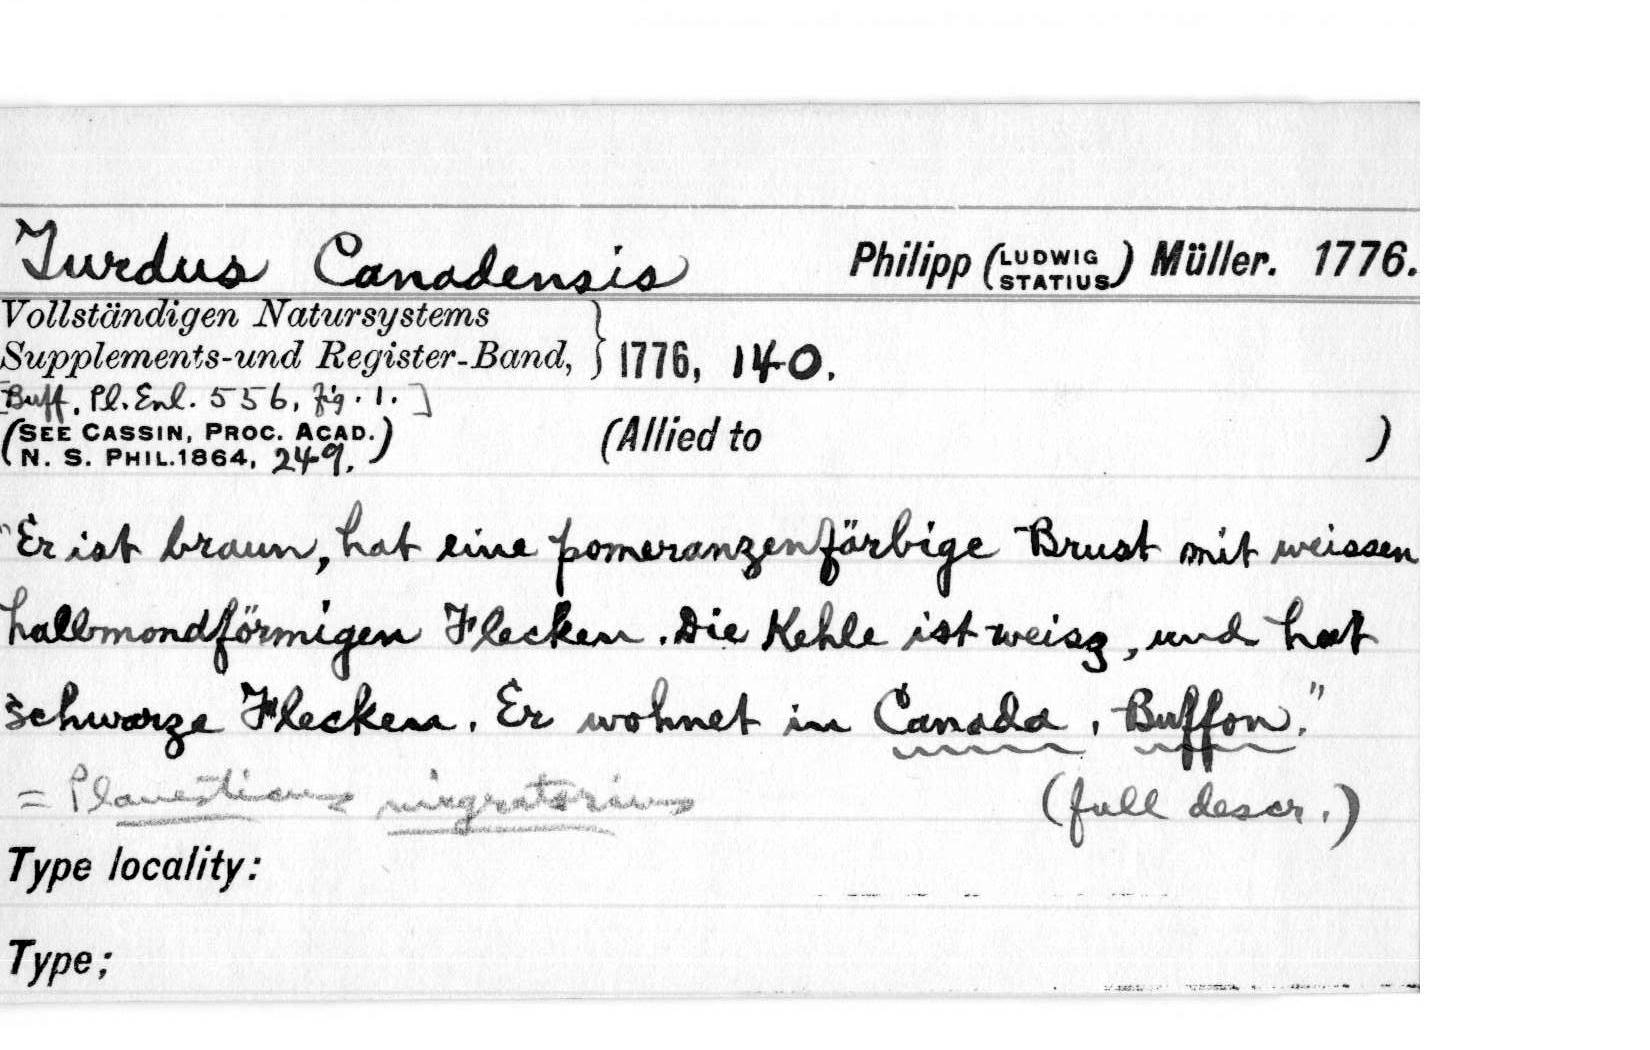 Turdus Canadensis Philipp (LUDWIG STATIUS) Müller. 1776.
Vollständigen Natursystems
Supplements-und Register-Band, } 1776, 140.
[Buff. Pl. Enl. 556, fig. 1.]
(SEE CASSIN, PROC. ACAD.
N. S. PHIL. 1864, 249.) (Allied to )
"Er ist braun, hat eine pomeranzenfärbige Brust mit weissen
halbmondförmigen Flecken. Die Kehle ist weisz, und hat
schwarze Flecken. Er wohnet in Canada. Buffon."
= Planesticus migratorius (full descr.)
Type locality:
Type;